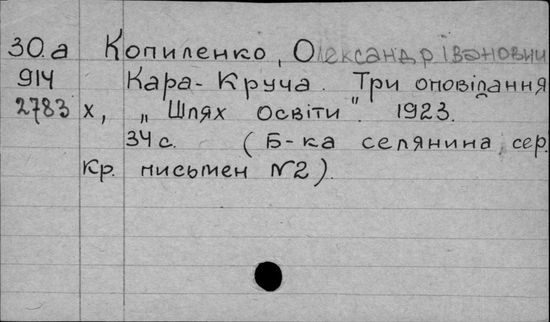 30.а Копиленко, Олександр Іванович
914 Кара-Круча. Три оповідання
2783 Х, „Шлях освіти". 1923.
34 с. (Б-ка селянина, сер.
Кр. письмен №2).